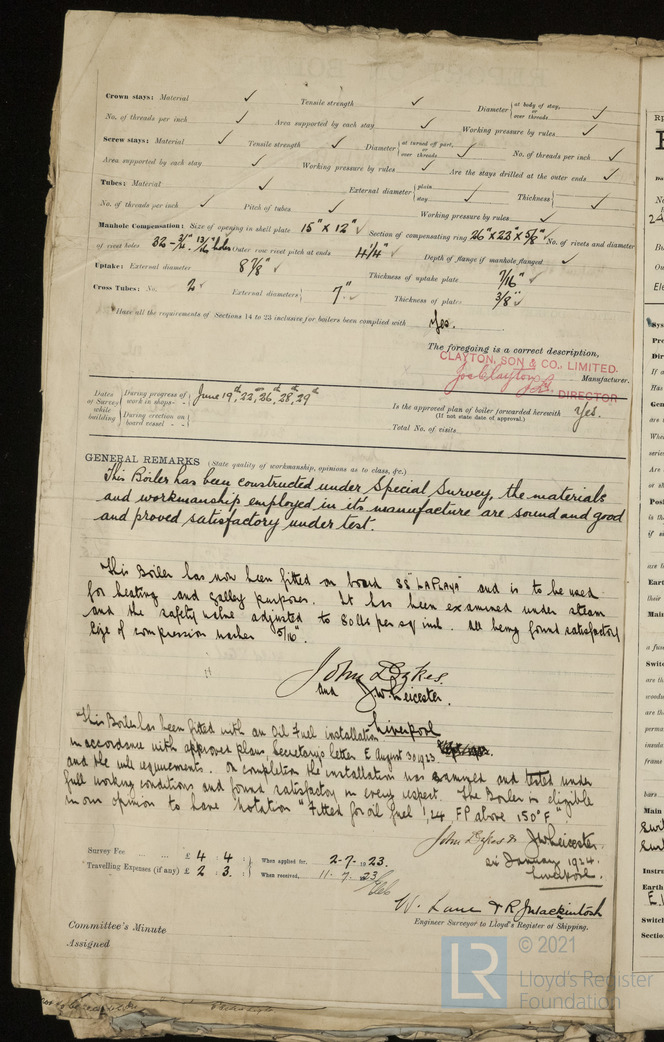 Crown stays: Material ✓ Tensile strength ✓ Diameter { at body of stay, or over threads ✓
No. of threads per inch ✓ Area supported by each stay ✓ Working pressure by rules ✓
Screw stays: Material ✓ Tensile strength ✓ Diameter { at turned off part, or over threads ✓ No. of threads per inch ✓
Area supported by each stay ✓ Working pressure by rules ✓ Are the stays drilled at the outer ends ✓
Tubes: Material ✓ External diameter { plain stay ✓ Thickness { ✓
No. of threads per inch ✓ Pitch of tubes ✓ Working pressure by rules ✓
Manhole Compensation: Size of opening in shell plate 15" x 12" ✓ Section of compensating ring 26" x 23" x 5/8" No. of rivets and diameter
of rivet holes 32 - 3/4" 13/16 holes Outer row rivet pitch at ends 4 1/4" ✓ Depth of flange if manhole flanged ✓
Uptake: External diameter 8 7/8" ✓ Thickness of uptake plate 7/16" ✓
Cross Tubes: No. 2 ✓ External diameters { 7" ✓ Thickness of plates 3/8" ✓
Have all the requirements of Sections 14 to 23 inclusive for boilers been complied with Yes.
The foregoing is a correct description,
CLAYTON, SON & CO., LIMITED.
Jos Clayton Manufacturer.
DIRECTOR
Dates of Survey while building { During progress of work in shops - - } June 19th, 22, 26, 28, 29th
{ During erection on board vessel - - }
Is the approved plan of boiler forwarded herewith Yes.
(If not state date of approval.)
Total No. of visits
GENERAL REMARKS (State quality of workmanship, opinions as to class, &c.)
This Boiler has been constructed under Special Survey, the materials
and workmanship employed in its manufacture are sound and good
and proved satisfactory under test.
This Boiler has now been fitted on board SS "LA PLAYA" and is to be used
for heating and galley purposes. It has been examined under steam
and the safety valve adjusted to 80 lbs per sq inch. All being found satisfactory
Size of compression washer 5/16".
John Dykes.
and JW Leicester.
Liverpool
This Boiler has been fitted with an Oil Fuel installation
in accordance with approved plans, Secretary's letter E August 30 1923
and the rule requirements. On completion the installation was examined and tested under
full working conditions and found satisfactory in every respect. The Boiler is eligible
in our opinion to have notation "Fitted for oil fuel 1,24, FP above 150°F".
John Dykes & JW Leicester.
January 1924.
Liverpool.
Survey Fee ... £ 4 : 4 : When applied for, 2-7-1923.
Travelling Expenses (if any) £ 2 : 3 : When received, 11.7.1923
W. Lane & R J Mackintosh
Engineer Surveyor to Lloyd's Register of Shipping.
Committee's Minute
Assigned
LR © 2021
Lloyd's Register
Foundation